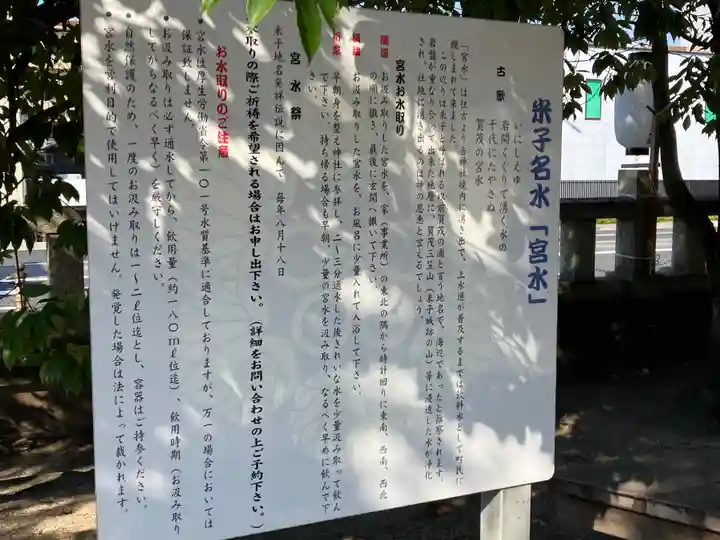 米子名水「宮水」
古歌
いにしえゆ
岩間くぐりて湧く水の
千代にたやさぬ
賀茂の宮水
「宮水」は往古より当神社境内に湧き出で、上水道が普及するまでは飲料水として町民に
親しまれて来ました。
この辺りは米子と呼ばれる以前賀茂の浦と言う地名で、海辺であったと推察されます。
岩盤が重なり合って出来た地層に、賀茂三笠山(米子城跡の山)等に浸透した水が浄化
され、社地に湧き出るのは神の恩恵と言えるでしょう。
宮水お水取り
開運
お汲み取りした宮水を、家(事業所)の東北の隅から時計回りに東南、西南、西北
の順に撒き、最後に玄関へ撒いて下さい。
お汲み取りした宮水を、お風呂に少量入れて入浴して下さい。
早朝身を整え神社に参拝し、二〜三分通水した後きれいな水を少量汲み取って飲ん
で下さい。持ち帰る場合も早朝、少量の宮水を汲み取り、なるべく早めに飲んで下
さい。
宮水祭
米子地名発祥伝説に因んで、毎年八月十八日
水取りの際ご祈祷を希望される場合はお申し出下さい。(詳細をお問い合わせの上ご予約下さい。)
お水取りのご注意
●宮水は厚生労働省令第一〇一号水質基準に適合しておりますが、万一の場合においては
保証致しません。
●お汲み取りは必ず通水してから、飲用量(約一八〇mℓ位迄)、飲用時期(お汲み取り
してからなるべく早く)を厳守してください。
●自然保護のため、一度のお汲み取りは一〜二ℓ位迄とし、容器はご持参ください。
●宮水を営利目的で使用してはいけません。発覚した場合は法によって裁かれます。